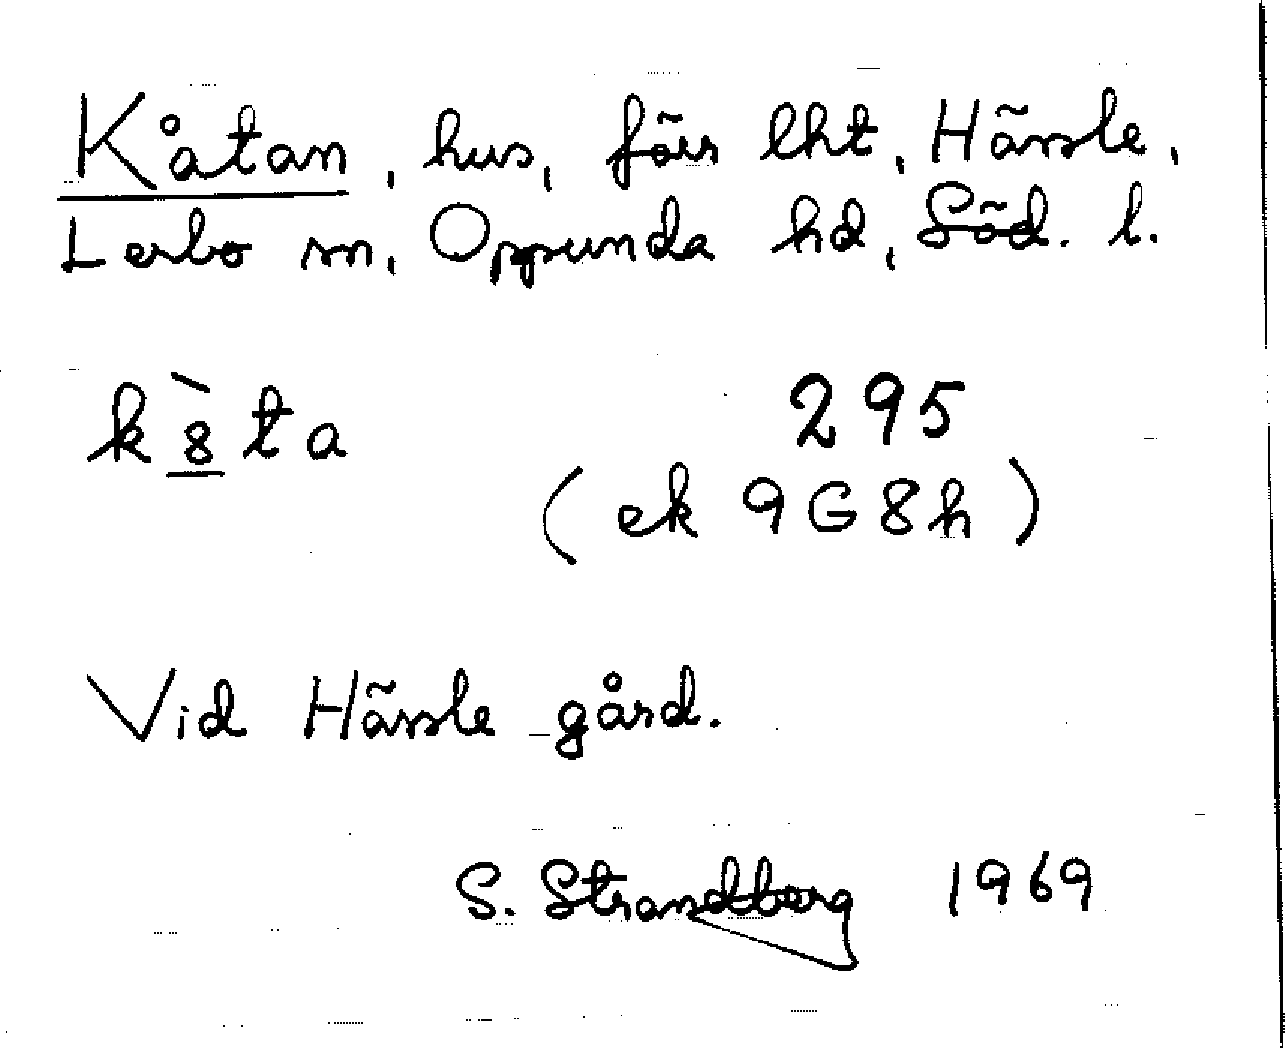 Kåtan, hus, förr lht, Hässle,
Lerbo sn, Oppunda hd, Söd. l.
k8̱̀ta 295
(ek 9G8h)
Vid Hässle gård.
S. Strandberg 1969